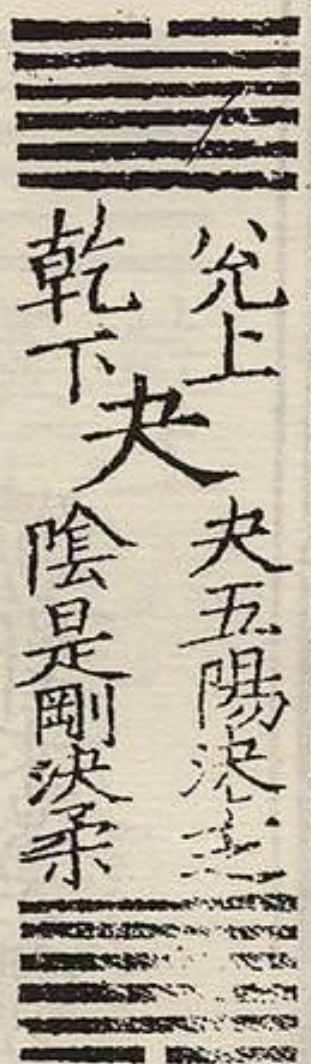 兊上
乾下
夬
夬五陽決
陰是剛決柔